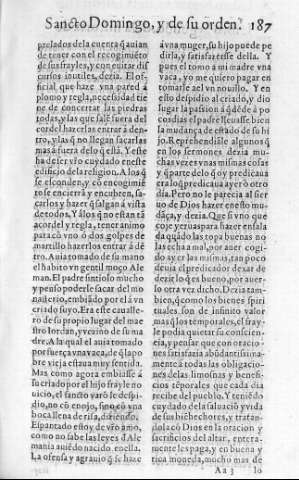 Sancto Domingo, y de su orden. 187
prelados dela cuenta q̃ auian
de tener con el recogimiẽto
de sus frayles, y con euitar dis
cursos inutiles, dezia. El of-
ficial, que haze vna pared á
plomo y regla, necesidad tie
ne de concertar las piedras
todas, y las que salẽ fuera del
cordel hazerlas entrar á den-
tro, y las q̃ no llegan sacarlas
mas á fuera delo q̃ estã. Y este
ha de ser vr̃o cuydado en este
edificio dela religion. A los q̃
se esconden, y cõ encogimiẽ
to se encierrã y encubren, sa-
carlos y hazer q̃ salgan á vista
de todos. Y á los q̃ no estan tã
acordel y regla, tener animo
para cõ vno ó dos golpes de
martillo hazerlos entrar á dẽ
tro. Auia tomado de su mano
el habito vn gentil moço Ale
man. El padre sintiolo mucho
y penso poderle sacar del mo
nasterio, embiãdo por el á vn
criado suyo. Era este cauallero
de su propio lugar del maes
tro Iordan, y vezino de su ma
dre. A la qual el auia tomado
por fuerça vna vaca, de q̃ la po
bre vieja estaua muy sentida.
Mas como agora embiasse á
su criado por el hijo frayle no
uicio, el sancto varõ le despi-
dio, no cõ enojo, sino cõ vna
boca llena de risa, diziendo.
Espantado estoy, de vr̃o amo,
como no sabe las leyes d̃ Ale
mania auiẽdo nacido en ella.
La ofensa y agrauio q̃ se haze
á vna muger, su hijo puede pe
dirla, y satisfazerse della. Y
pues el tomo á mi madre vna
vaca, yo me quiero pagar en
tomarle ael vn nouillo. Y en
esto despidio al criado, y dio
lugar la passion á q̃ dẽde á po
cos dias el padre lleuasse bien
la mudança de estado de su hi
jo. Reprehendiãle algunos q̃
en los sermones dezia mu-
chas vezes vnas mismas cosas
y q̃ parte delo q̃ oy predicaua
era lo q̃ predicaua ayer ò otro
dia. Pero no le parecia al sier
uo de Dios hazer en esto mu-
dãça, y dezia. Que si vno que
coje yeruas para hazer ensala
da q̃uãdo las topa buenas no
las echa á mal, por auer cogi-
do ay er otras tã mismas, tan poco
deuia el predicador dexar de
dezir lo q̃ es bueno, por auer-
lo otra vez dicho. Dezia tam-
bien, q̃ como los bienes spiri
tuales son de infinito valor
mas q̃ los tẽporales, el fray-
le podia quietar su consciencia,
y pensar que con oracio-
nes satisfazia abũdantissima-
mente á todas las obligacio-
nes delas limosnas y benefi-
cios tẽporales que cada dia
recibe del pueblo. Y teniẽdo
cuydado dela saluaciõ y vida
de sus biẽhechores, y tratan-
dola cõ Dios en la oracion y
sacrificios del altar, entera-
mente les paga, y en buena y
rica moneda, mucho mas de
Aa 3 lo